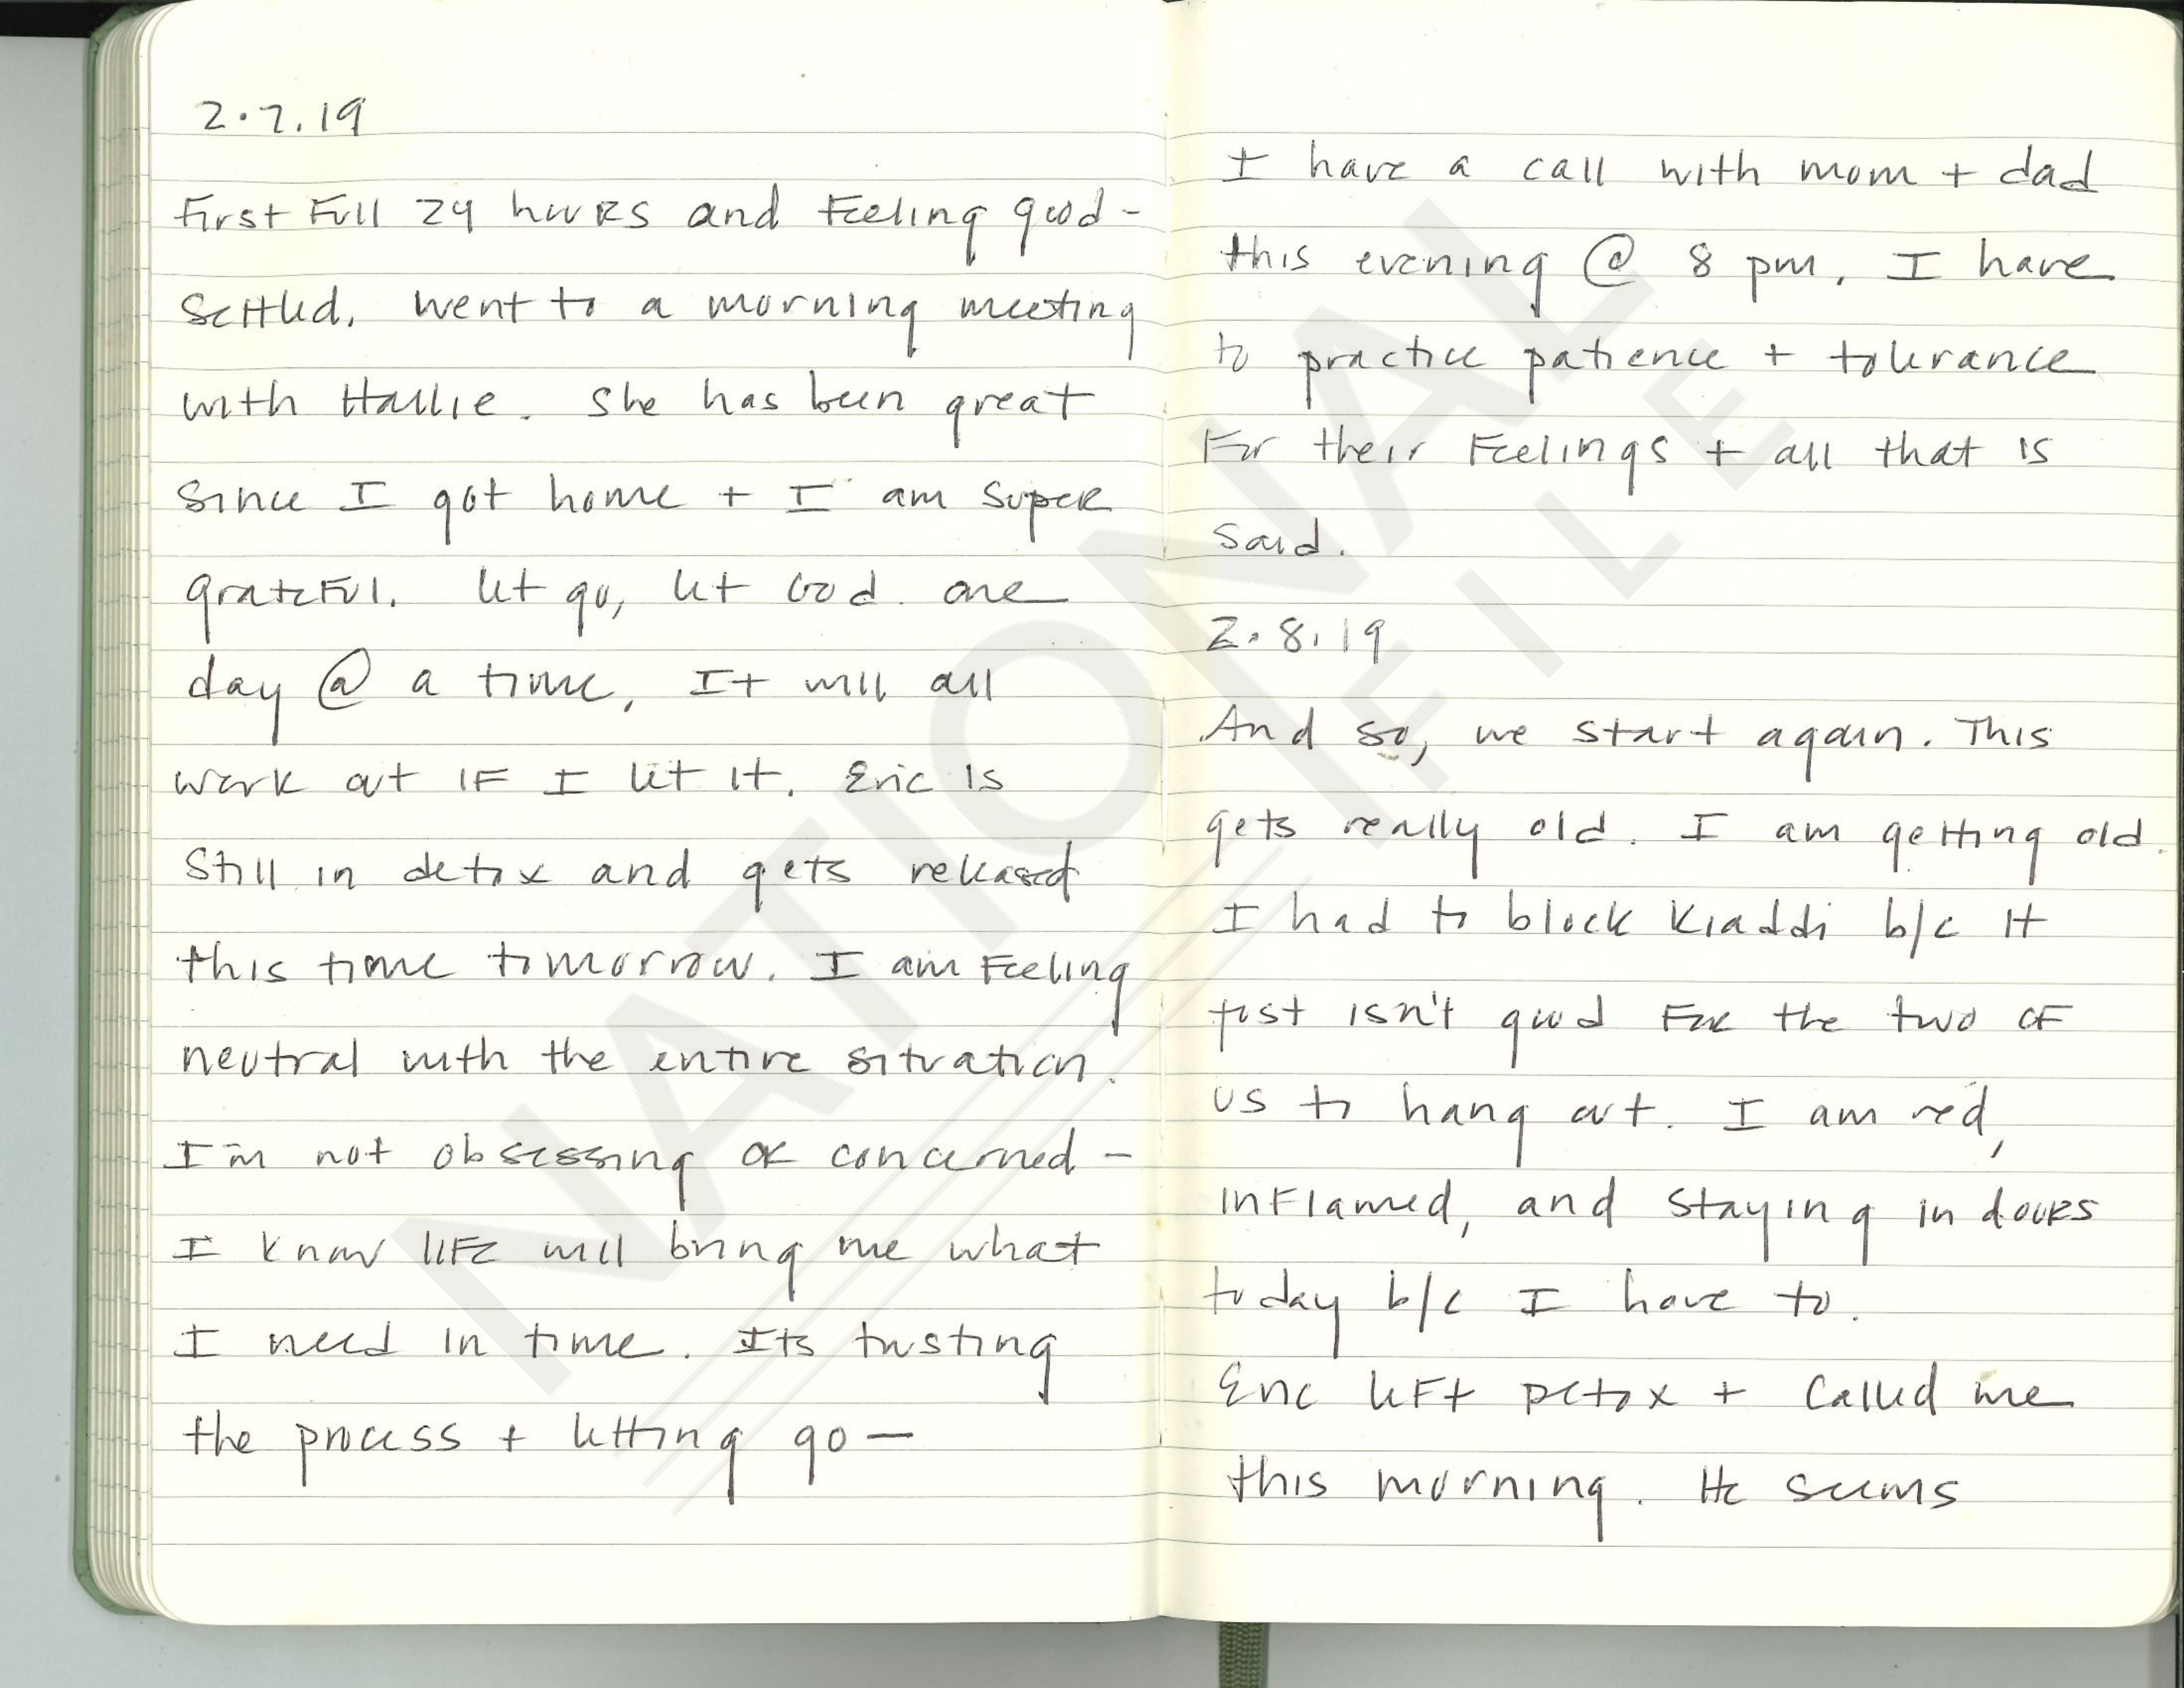 2.7.19
First Full 24 hours and Feeling good -
Settled. Went to a morning meeting
with Hallie. She has been great
since I got home + I am super
grateful. Let go, let God. One
day @ a time, It will all
work out if I let it. Eric is
Still in detox and gets released
this time tomorrow. I am Feeling
neutral with the entire situation.
I'm not obsessing or concerned -
I know life will bring me what
I need in time. Its trusting
the process + letting go —
I have a call with mom + dad
this evening @ 8 pm. I have
to practice patience + tolerance
For their Feelings + all that is
said.
2.8.19
And so, we start again. This
gets really old. I am getting old.
I had to block Kiaddi b/c it
just isn't good For the two of
us to hang out. I am red,
inflamed, and staying indoors
today b/c I have to.
Eric left Detox + Called me
this morning. He seems
NATIONAL
FILE